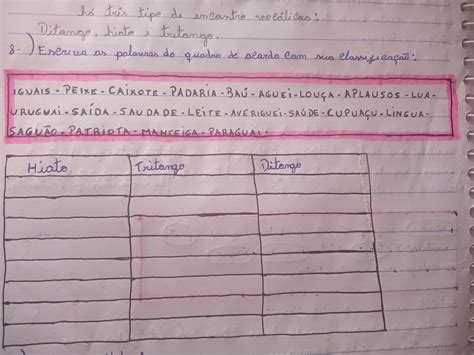 há três tipo de encontro vocálicos:
Ditongo, hiato e tritongo.
8-) Escreva as palavras do quadro de acordo com sua classificação:
IGUAIS - PEIXE - CAIXOTE - PADARIA - BAÚ - AGUEI - LOUÇA - APLAUSOS - LUA -
URUGUAI - SAÍDA - SAUDADE - LEITE - AVERIGUEI - SAÚDE - CUPUAÇU - LÍNGUA -
SAGUÃO - PATRIOTA - MANTEIGA - PARAGUAI -
Hiato Tritongo Ditongo